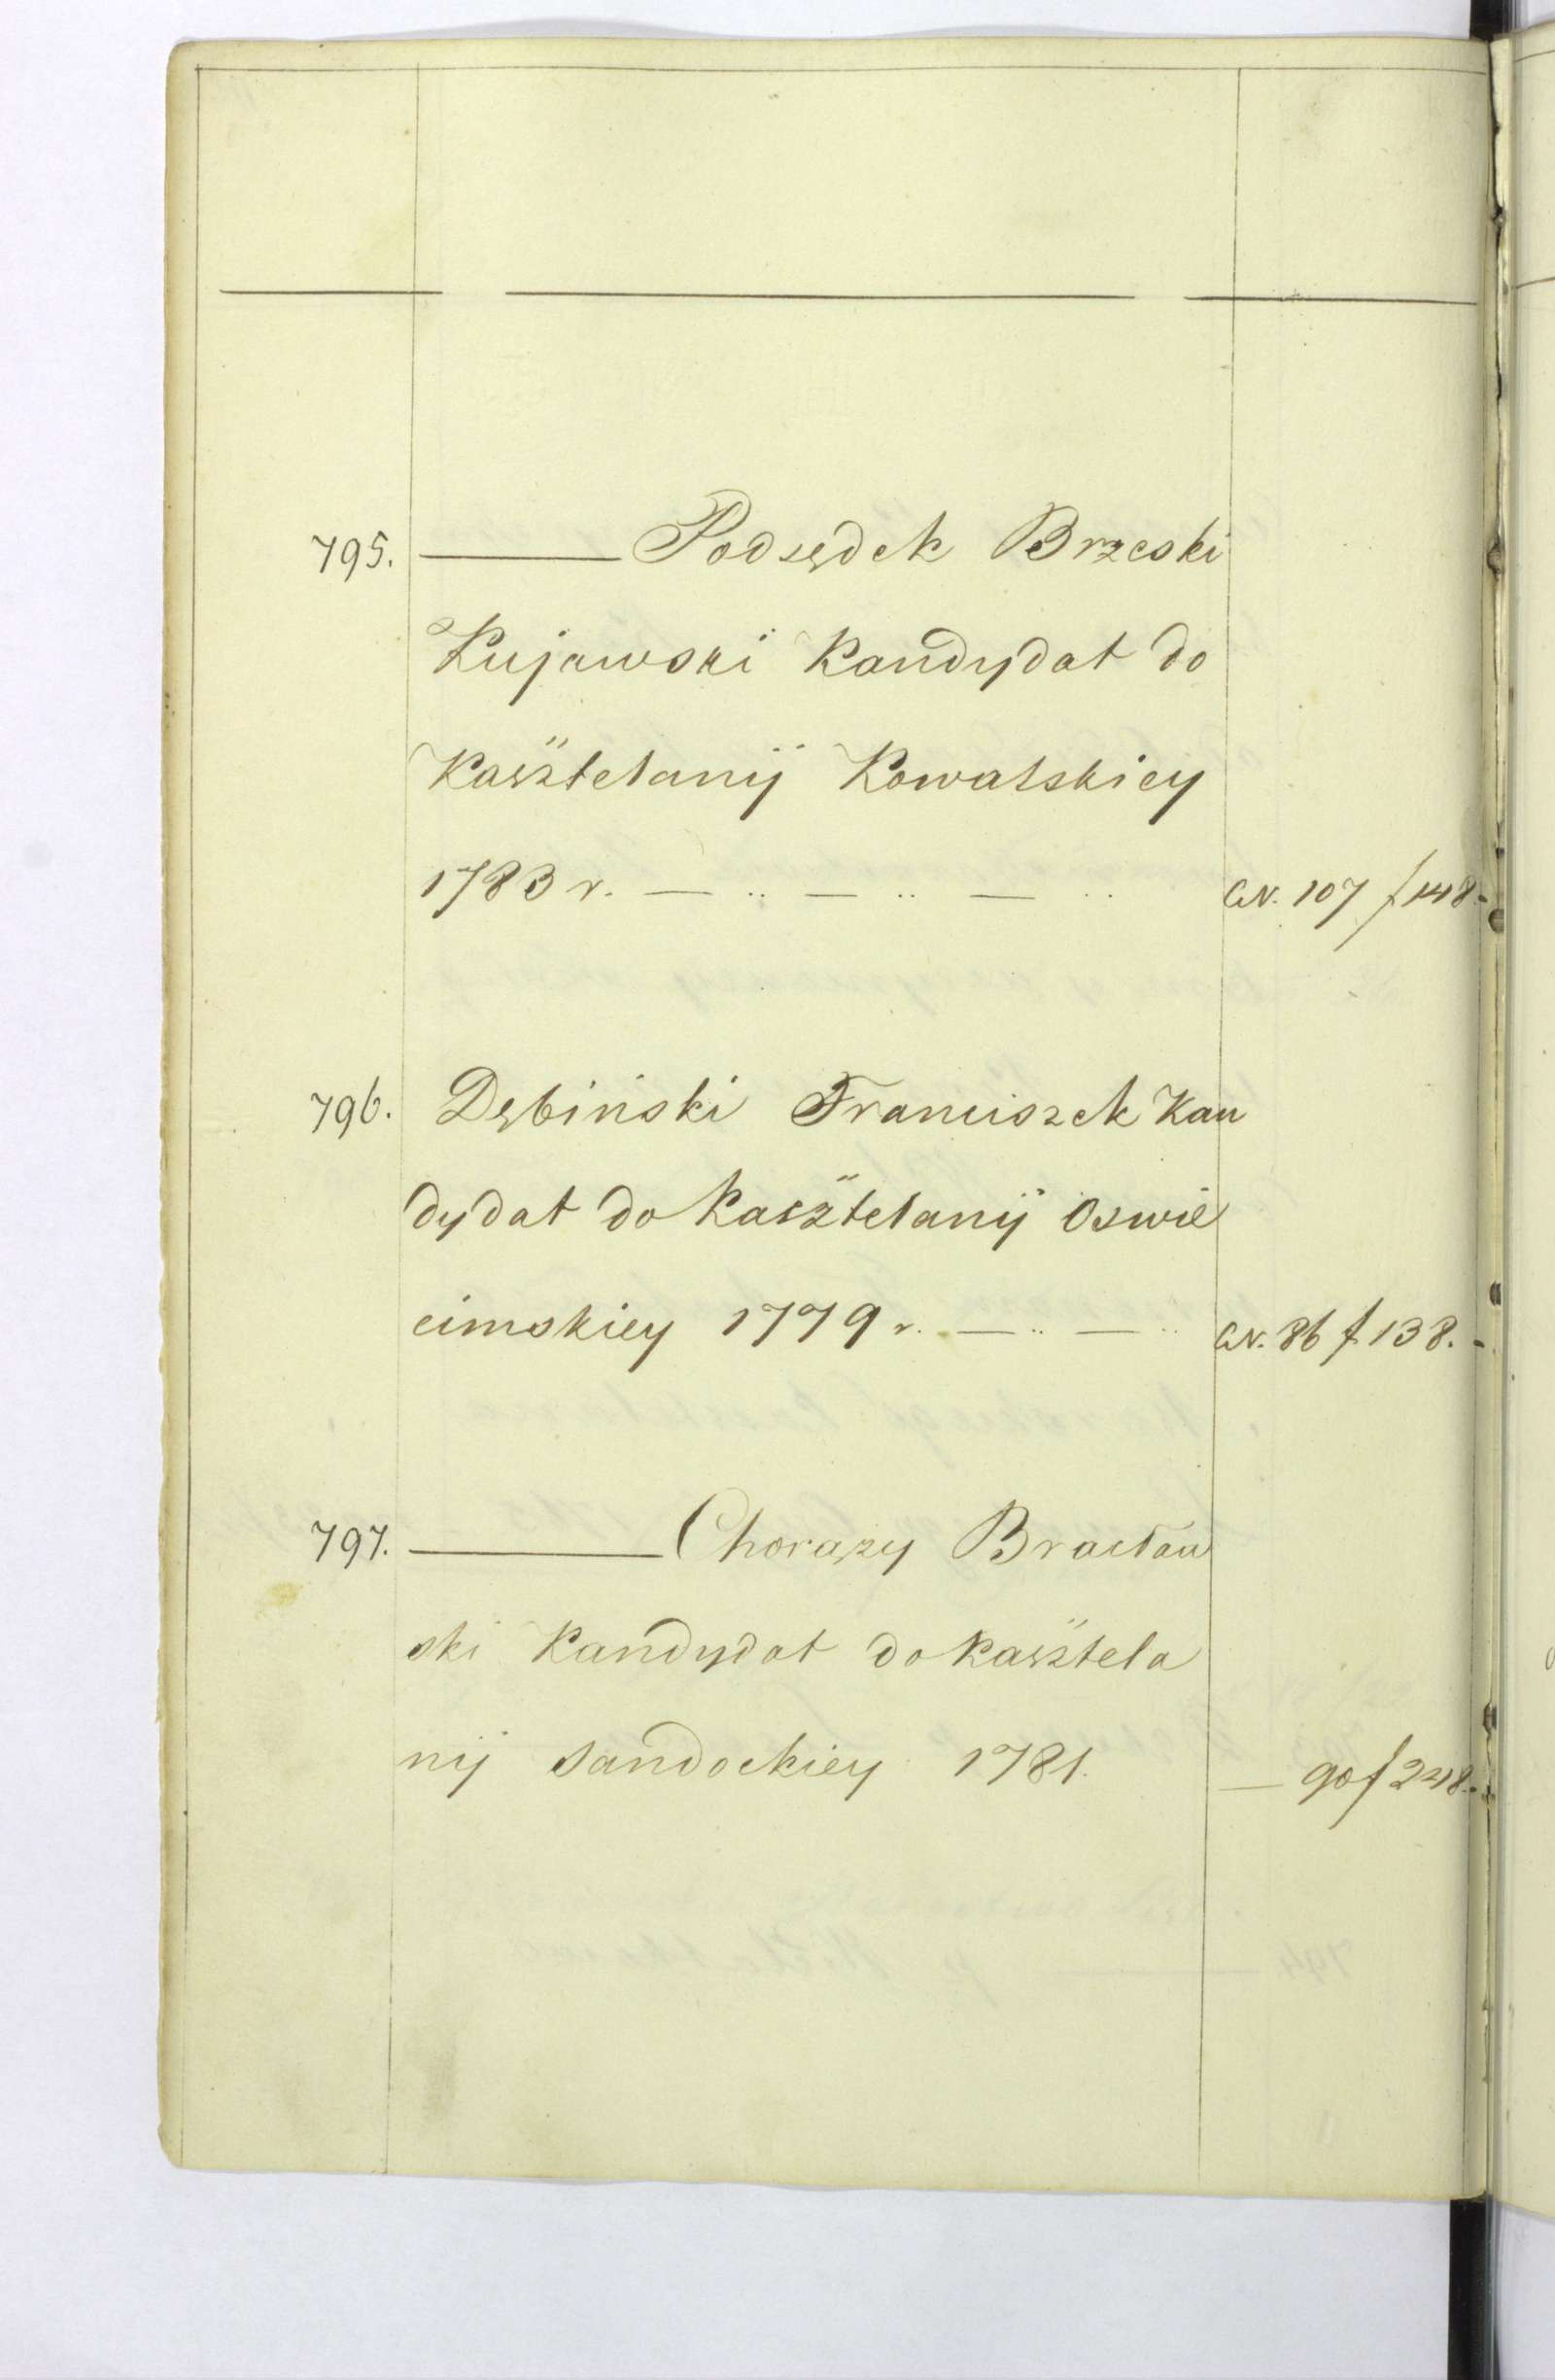 795. ——— Podsędek Brzeski
Kujawski Kandydat do
Kasztelanij Kowalskiey
1783 r. — .. — .. — .. CN. 107 f 148.-
796. Dębiński Franciszek Kan
dydat do Kasztelanij Oswie
cimskiey 1779 r. — .. — .. CN. 86 f. 138. -
797. ——— Chorązy Bracław
ski Kandydat do Kasztela
nij Sandockiey 1781. — 90 f 248.-